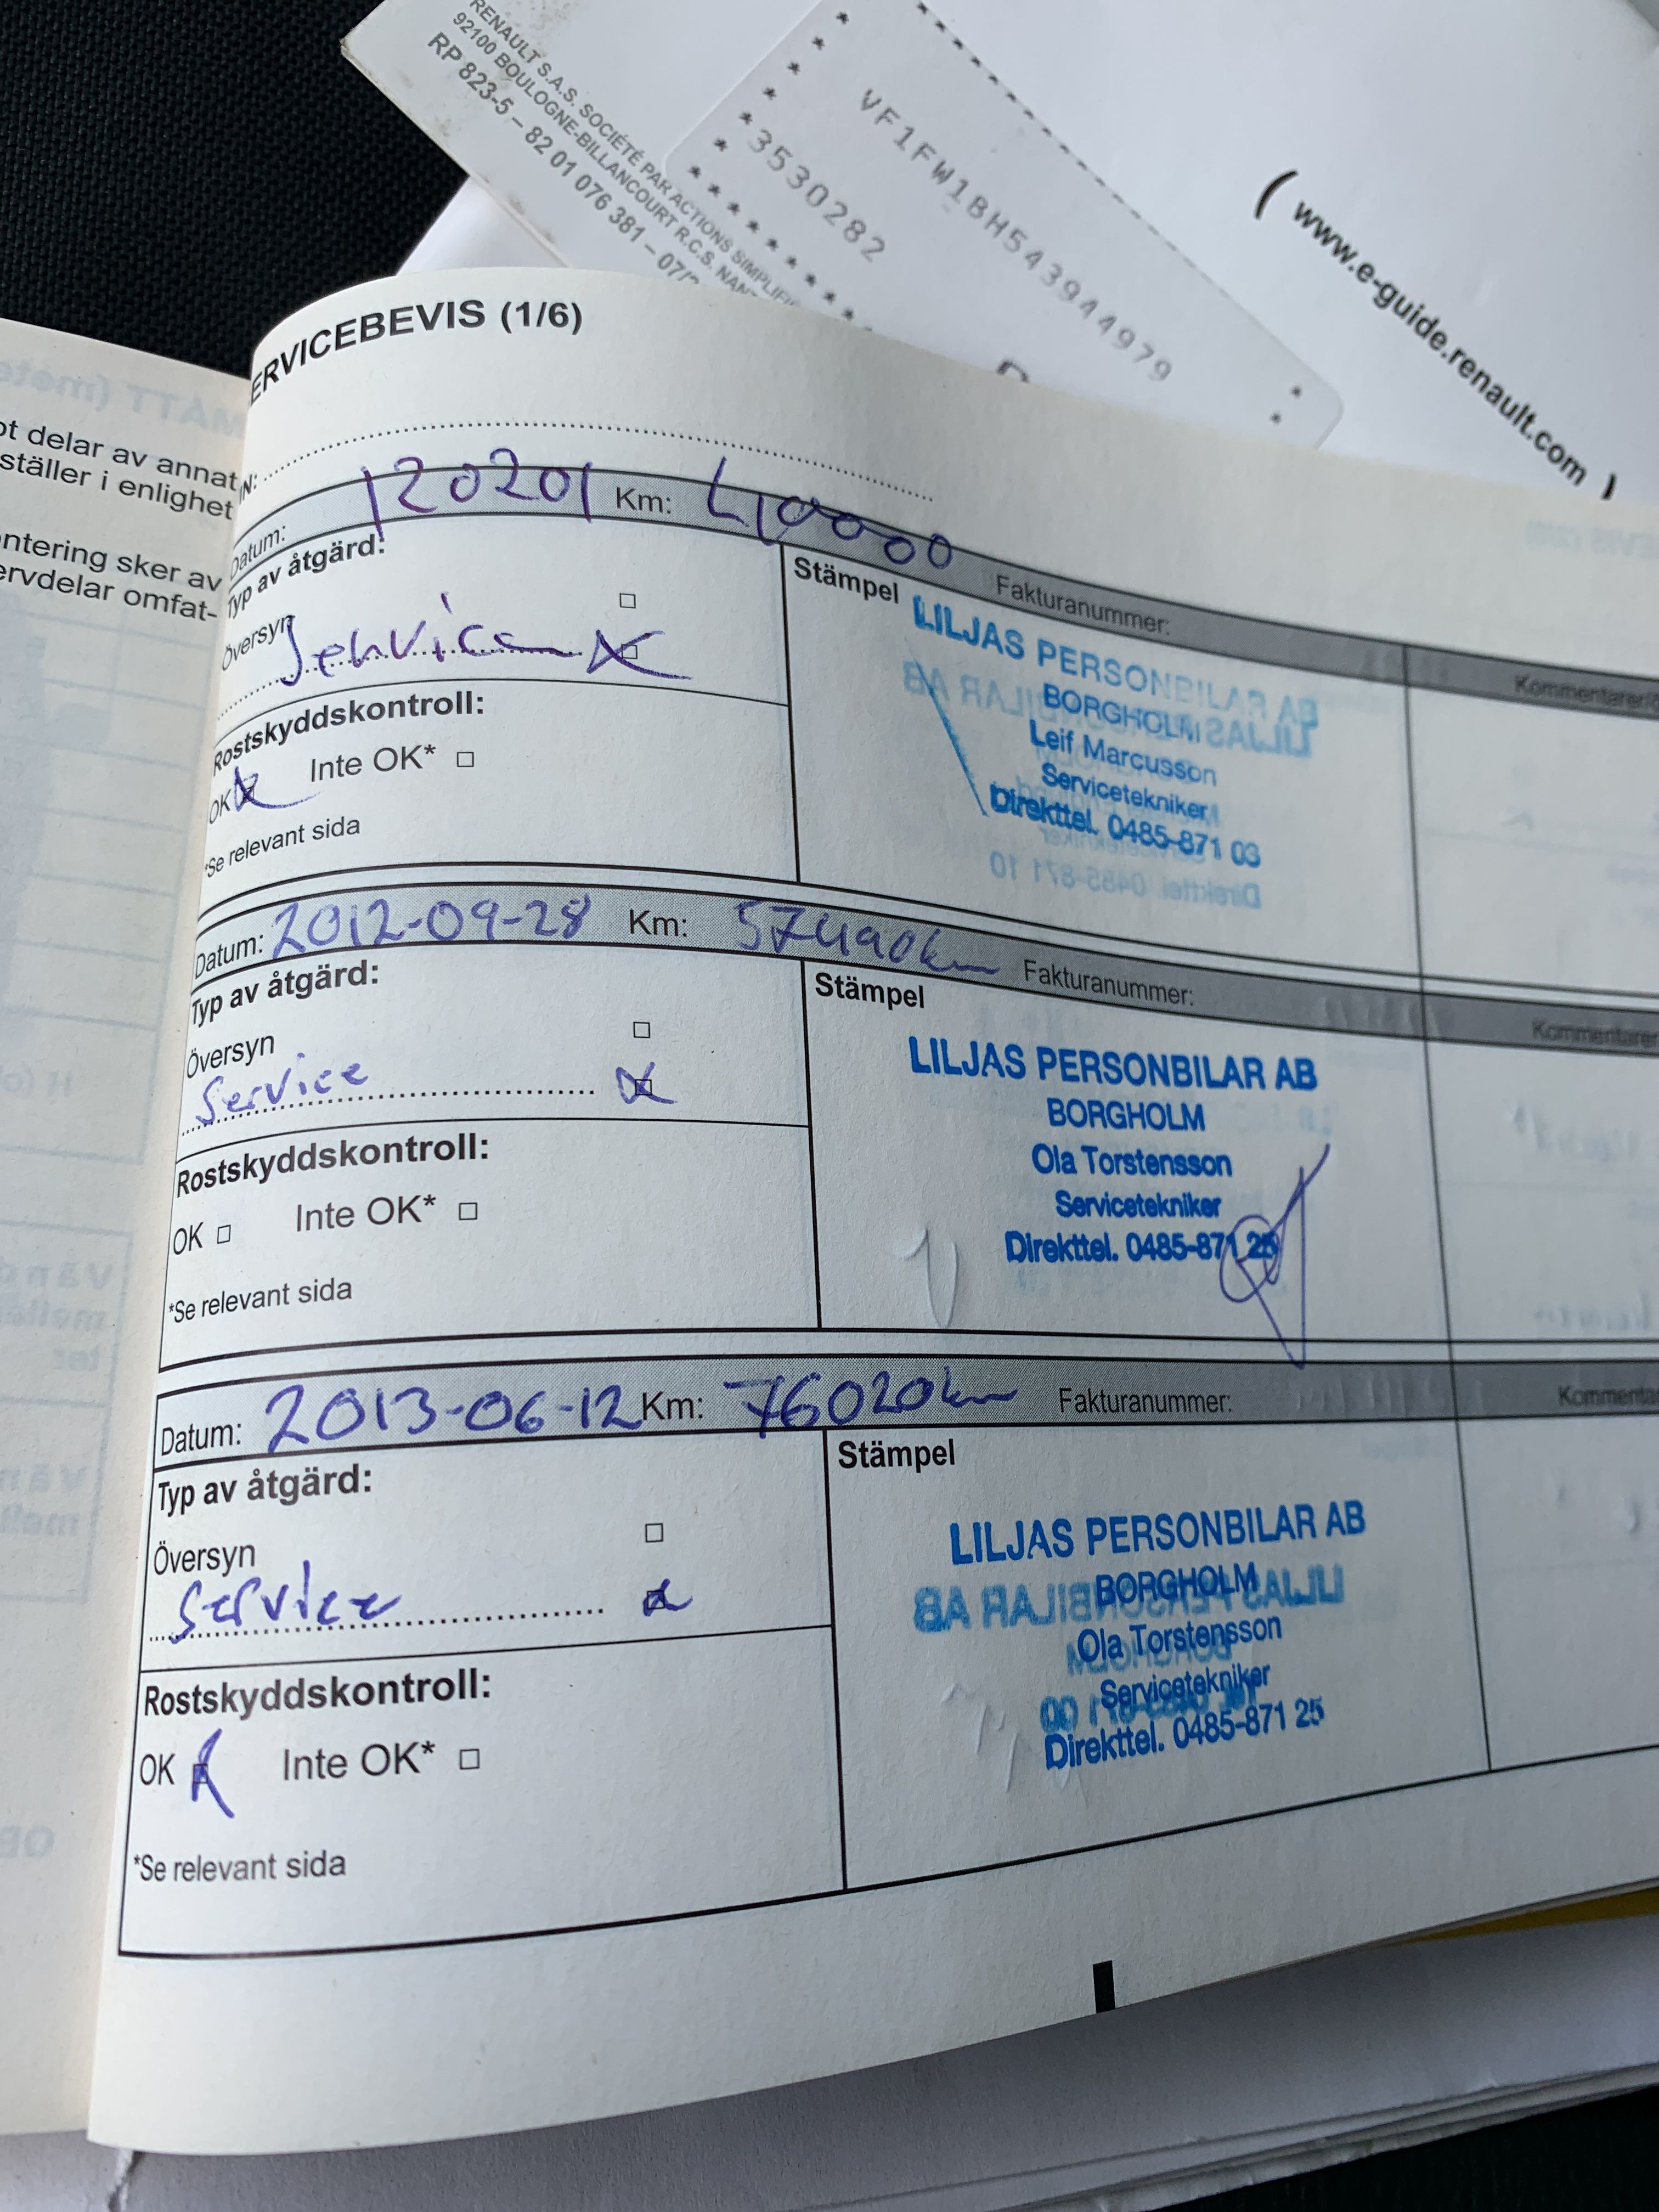 RENAULT S.A.S. SOCIÉTÉ PAR ACTIONS SIMPLIFI
92100 BOULOGNE-BILLANCOURT R.C.S. NAN
RP 823-5 – 82 01 076 381 – 07/
VF1FW1BH543944979
*3530282
( www.e-guide.renault.com )
MÅTT (mete
ot delar av annat
ställer i enlighet
ntering sker av
ervdelar omfat-
ERVICEBEVIS (1/6)
IN:
Datum: 120201 Km: 41000 Fakturanummer:
Kommentarer/
Typ av åtgärd:
Stämpel
Översyn
Service
LILJAS PERSONBILAR AB
BORGHOLM
Leif Marcusson
Servicetekniker
Direkttel. 0485-871 03
Rostskyddskontroll:
OK Inte OK*
*Se relevant sida
Datum: 2012-09-28 Km: 57490km Fakturanummer:
Kommentarer
Typ av åtgärd:
Stämpel
Översyn
Service
LILJAS PERSONBILAR AB
BORGHOLM
Ola Torstensson
Servicetekniker
Direkttel. 0485-871 25
Rostskyddskontroll:
OK Inte OK*
*Se relevant sida
Datum: 2013-06-12 Km: 76020km Fakturanummer:
Kommenta
Typ av åtgärd:
Stämpel
Översyn
Service
LILJAS PERSONBILAR AB
BORGHOLM
Ola Torstensson
Servicetekniker
Direkttel. 0485-871 25
Rostskyddskontroll:
OK Inte OK*
*Se relevant sida